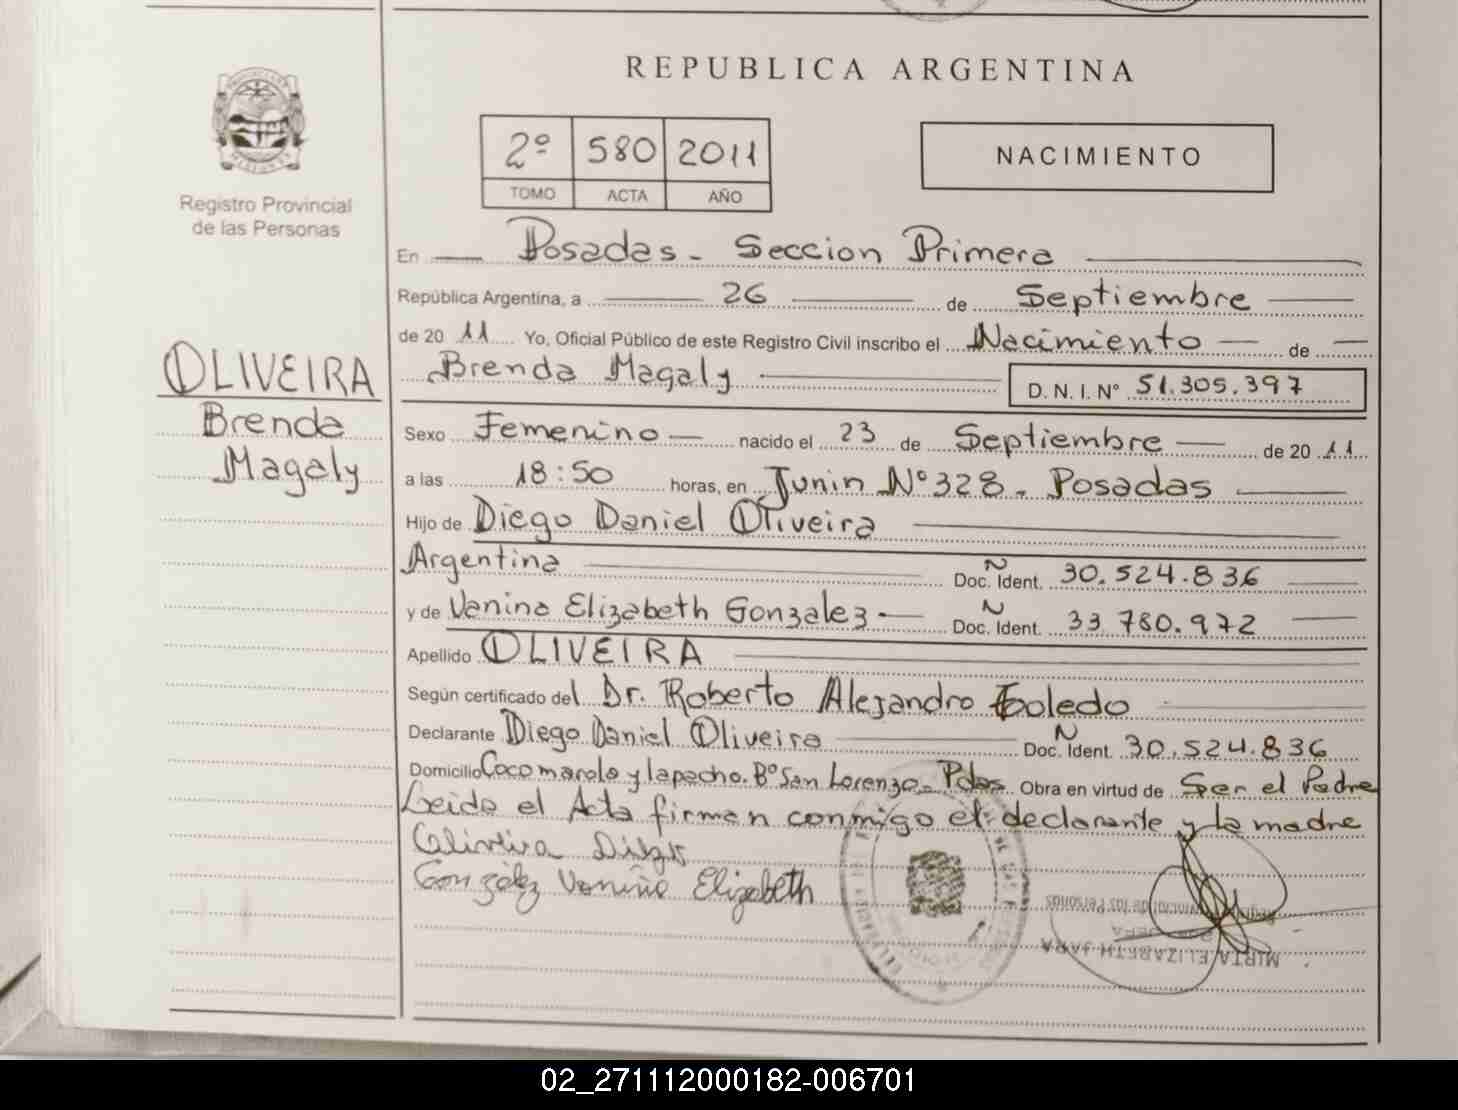 REPUBLICA ARGENTINA
2º 580 2011
TOMO ACTA AÑO
NACIMIENTO
Registro Provincial
de las Personas
OLIVEIRA
Brenda
Magaly
En Posadas - Seccion Primera
República Argentina, a 26 de Septiembre
de 20 11 Yo, Oficial Público de este Registro Civil inscribo el Nacimiento de
Brenda Magaly D. N. I. Nº 51.305.397
Sexo Femenino nacido el 23 de Septiembre de 20 11
a las 18:50 horas, en Junin Nº 328. Posadas
Hijo de Diego Daniel Oliveira
Argentina Doc. Ident. 30.524.836
y de Vanina Elizabeth Gonzalez Doc. Ident. 33.780.972
Apellido OLIVEIRA
Según certificado del Dr. Roberto Alejandro Toledo
Declarante Diego Daniel Oliveira Doc. Ident. 30.524.836
Domicilio Cocomarola y lapacho. Bº San Lorenzo - Pdas Obra en virtud de Ser el Padre
Leida el Acta firman conmigo el: declarante y la madre
González Vanina Elizabeth
Registro Provincial de las Personas
MIRTA ELIZABETH JARA
02_271112000182-006701